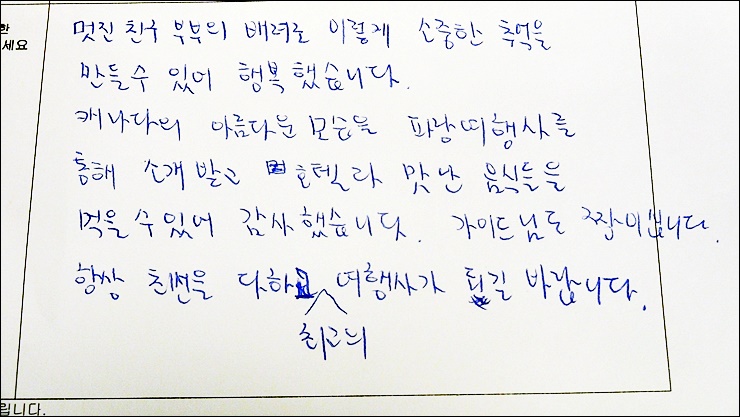 한
세요
멋진 친구 부부의 배려로 이렇게 소중한 추억을
만들수 있어 행복했습니다.
캐나다의 아름다운 모습을 파랑여행사를
통해 소개 받고 호텔과 맛난 음식들을
먹을수있어 감사했습니다. 가이드님도 짱이십니다.
항상 최선을 다하는 최고의 여행사가 되길 바랍니다.
립니다.